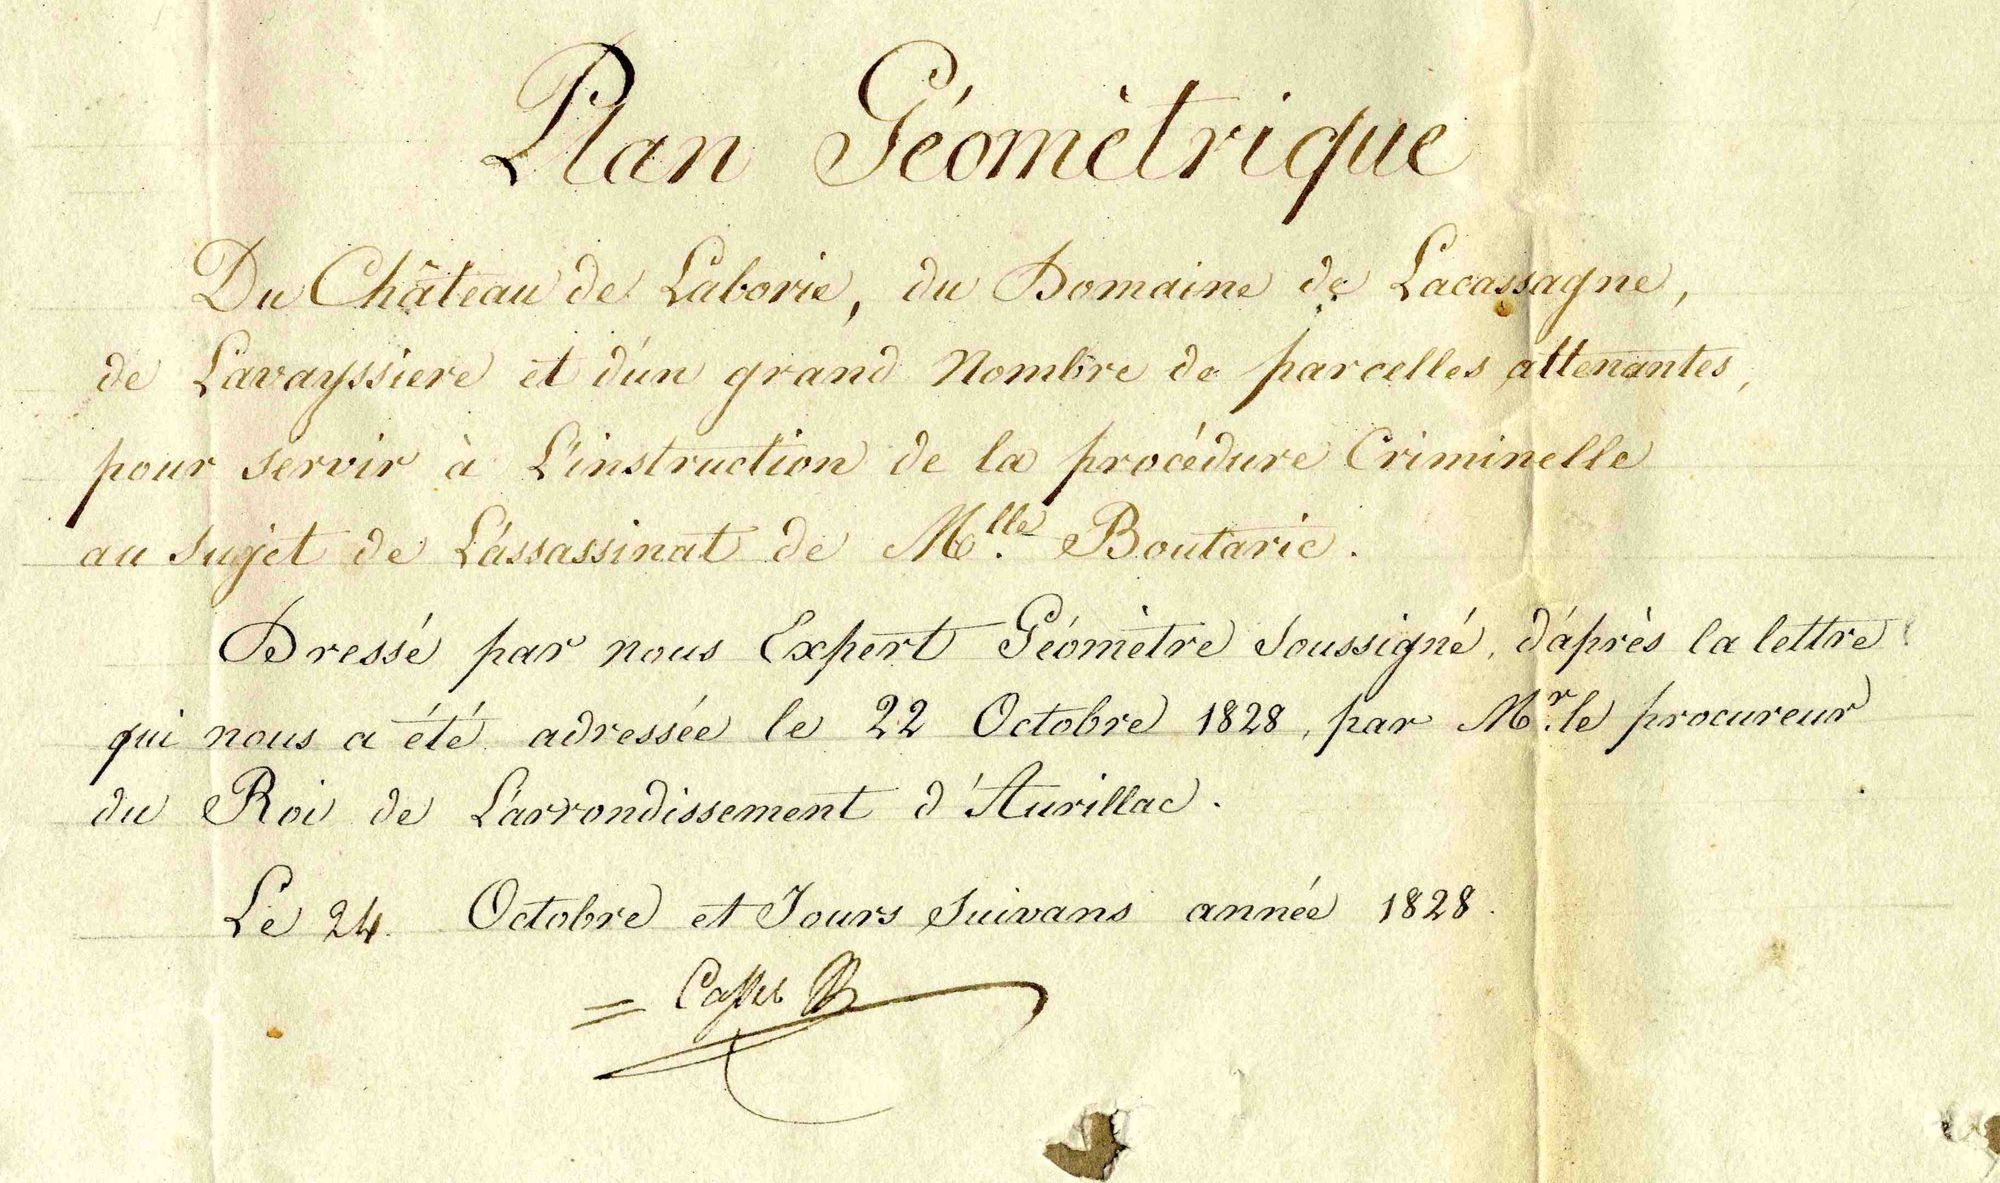 Plan Géomètrique
Du Château de Laborie, du Domaine de Lacassagne,
de Lavayssiere et d'un grand Nombre de parcelles attenantes,
pour servir à L'instruction de la procédure Criminelle
au Sujet de L'assassinat de M.lle Boutaric.
Dressé par nous Expert Géomètre Soussigné, d'après la lettre
qui nous a été adressée le 22 Octobre 1828, par M.r le procureur
du Roi de L'arrondissement d'Aurillac.
Le 24 Octobre et Jours Suivans année 1828.